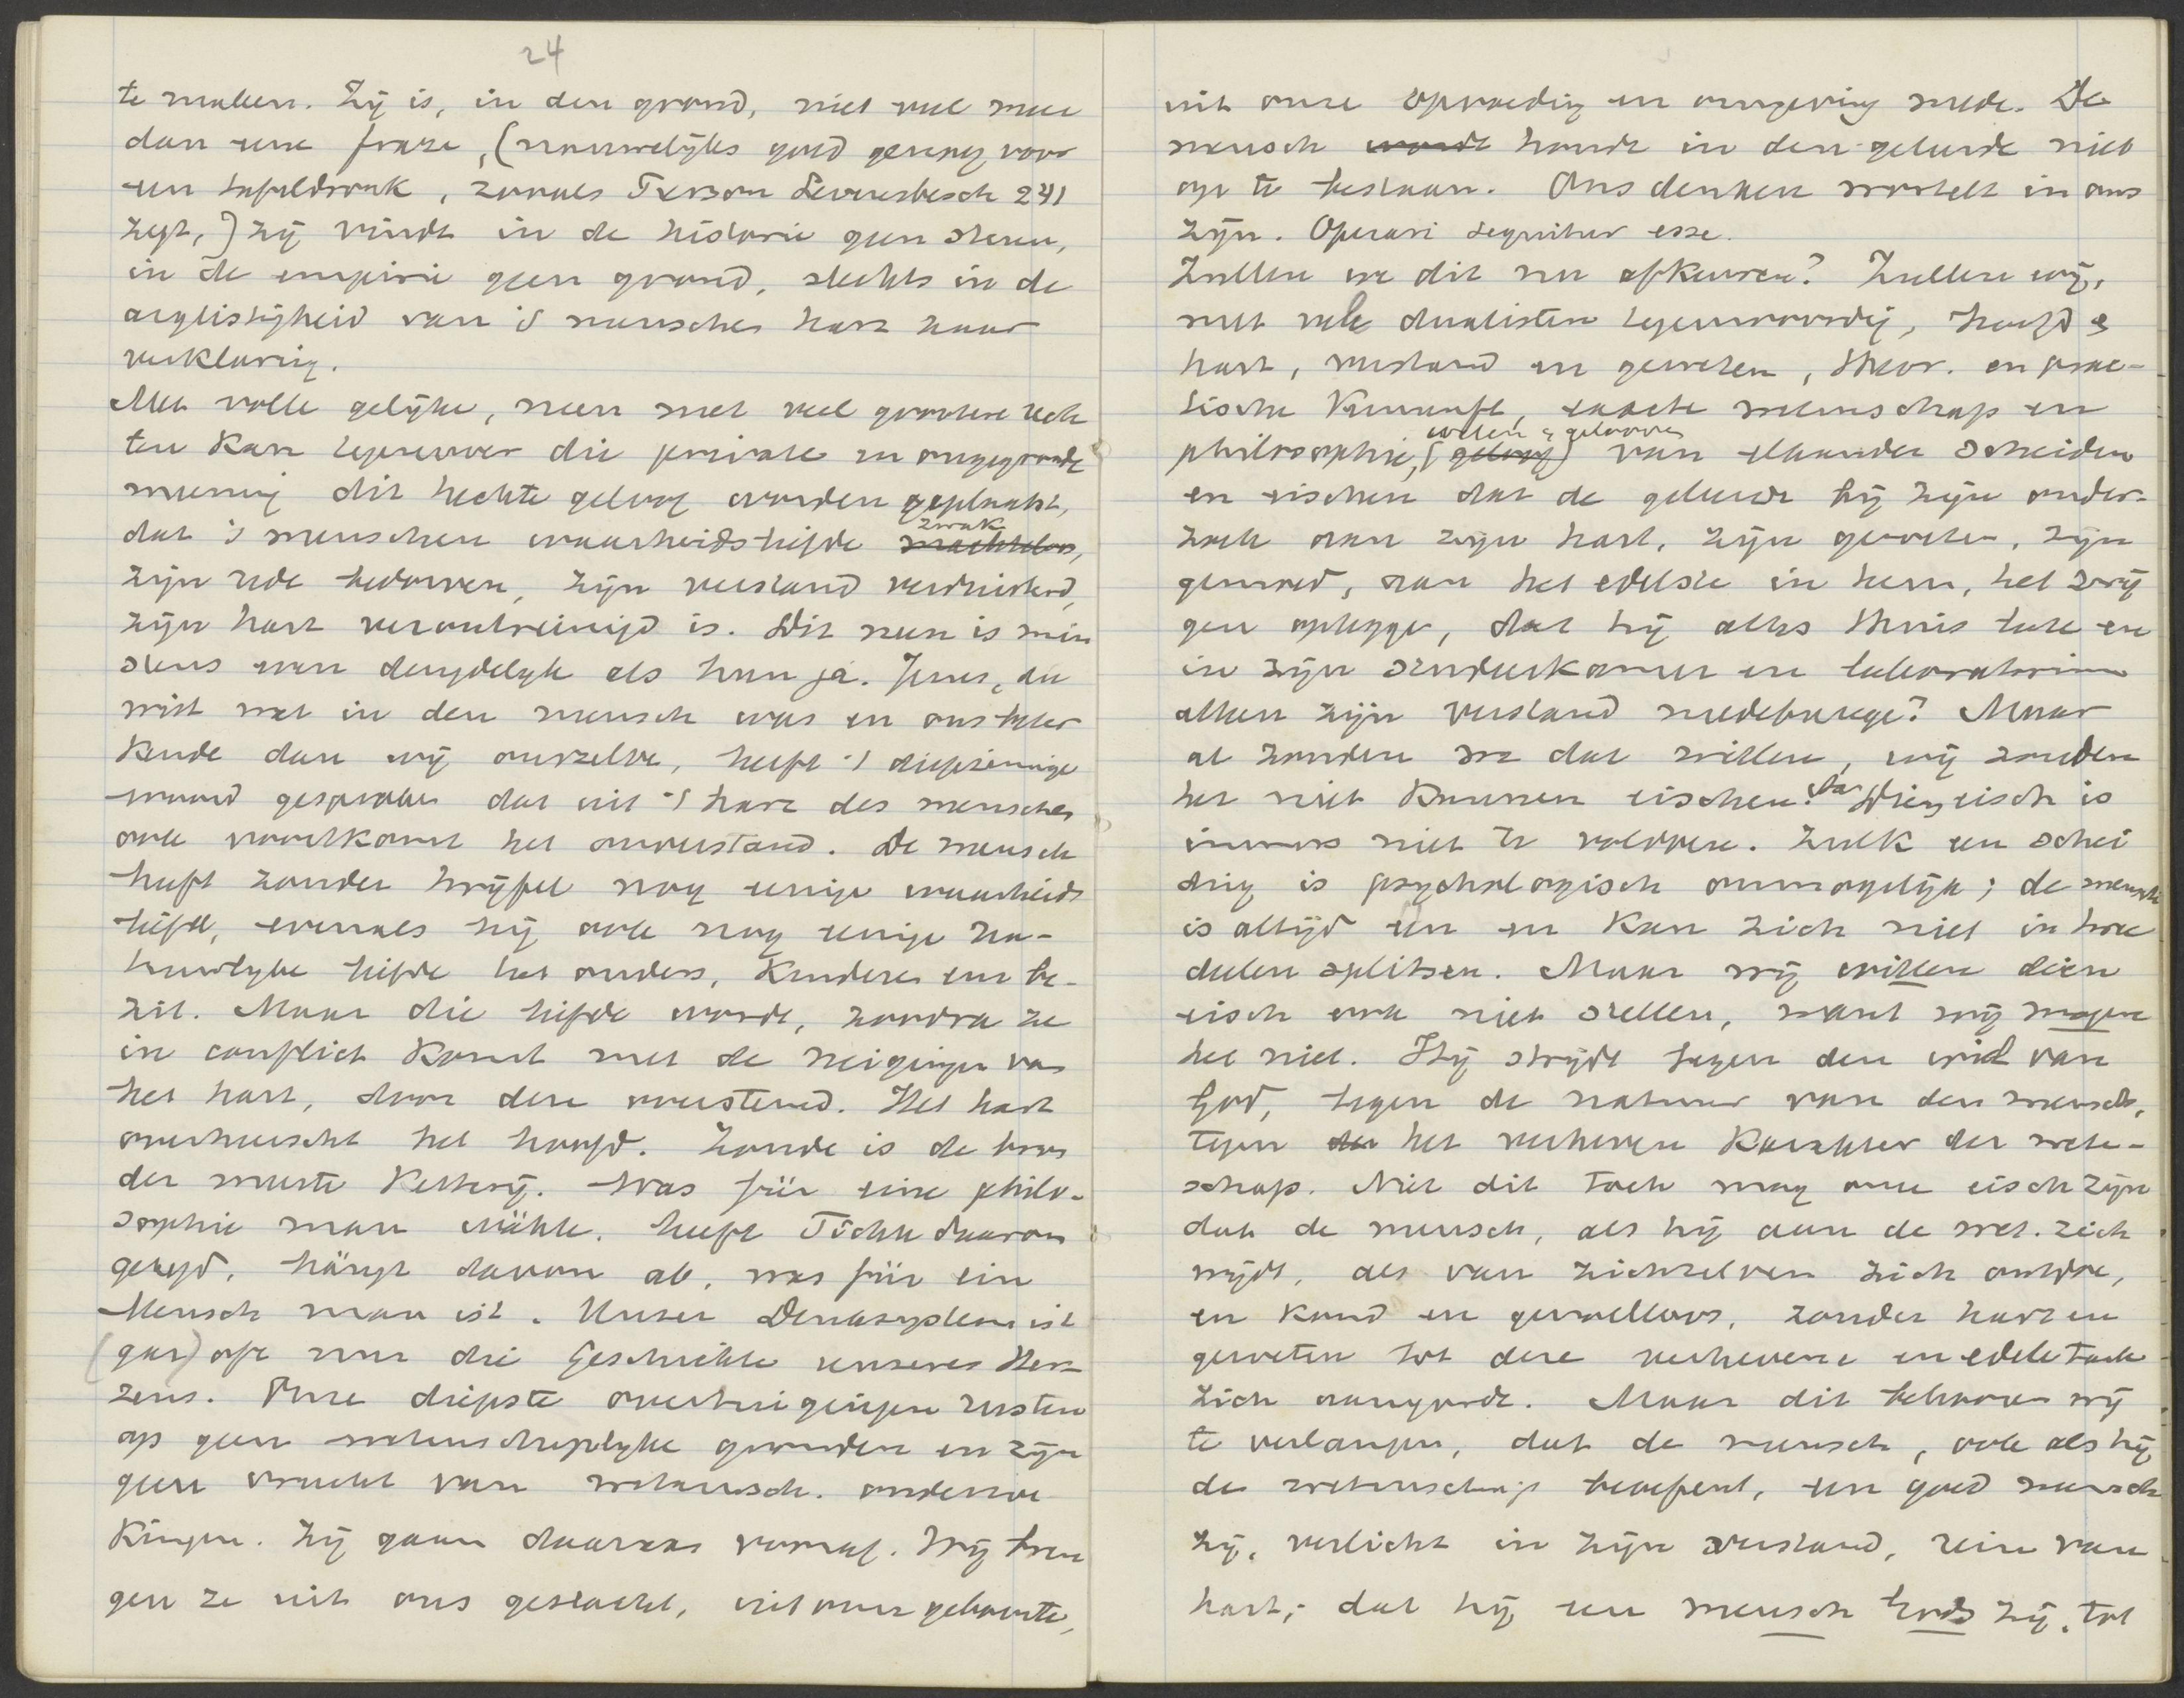 24
te maken. Zij is, in den grond, niet veel meer
dan eene fraze, (nauwelijks goed genoeg voor
een tafeldronk, zooals Levensbesch 241
zegt,) zij vindt in de historie geen steun,
in de empirie geen grond, slechts in de
arglistigheid van 's menschen hart haar
verklaring.
Met volle gelijke, neen met veel grootere rech
ten kan tegenover die private en ongegronde
meening dit hechte geloof worden geplaatst,
dat 's menschen waarheidsliefde zwak machteloos,
zijn rede bedorven, zijn verstand verduisterd,
zijn hart verontreinigd is. Dit neen is min
stens even deugdelijk als hun ja. Jezus, die
wist wat in den mensch was en ons beter
kende dan wij onszelve, heeft 't diepzinnige
woord gesproken dat uit 't hart des menschen
ook voortkomt het onverstand. De mensch
heeft zonder twijfel nog eenige waarheids
liefde, evenals hij ook nog eenige na-
tuurlijke liefde tot ouders, kinderen enz be-
zit. Maar die liefde wordt, zoodra ze
in conflict komt met de neigingen van
het hart, door deze overstemd. Het hart
overheerscht het hoofd. Zonde is de bron
der meeste ketterij. Was für eine philo-
sophie man wähle, heeft Fichte daarom
gezegd, hängt davon ab, was für ein
Mensch man ist. Unser Denksystem ist
(gar) oft nur die Geschichte unseres Her-
zens. Onze diepste overtuigingen rusten
op geen wetenschappelijke gronden en zijn
geen vrucht van wetensch. onderzoe
kingen. Zij gaan daaraan vooraf. Wij bren
gen ze uit ons geslacht, uit onze geboorte,
uit onze opvoeding en omgeving mede. De
mensch wordt houdt in den geleerde niet
op te bestaan. Ons denken wortelt in ons
zijn. Operari sequitur esse.
Zullen we dit nu afkeuren? Zullen wij,
met vele dualisten tegenwoordig, hoofd &
hart, verstand en geweten, theor. en prac-
tische Vernunft, exacte wetenschap en
philosophie, (geloof) weten & gelooven van elkander scheiden
en eischen dat de geleerde bij zijn onder-
zoek aan zijn hart, zijn geweten, zijn
gemoed, aan het edelste in hem, het zwij
gen oplegge, dat hij alles thuis late en
in zijn studeerkamer en laboratorium
alleen zijn verstand medebrenge? Maar
al zouden we dat willen, wij zouden
het niet kunnen eischen. Dien eisch is
immers niet te voldoen. Zulk een schei
ding is psychologisch onmogelijk; de mensch
is altijd een en kan zich niet in twee
deelen splitsen. Maar wij willen dien
eisch ook niet stellen, want wij mogen
het niet. Hij strijdt tegen den wil van
God, tegen de natuur van den mensch,
tegen der het verheven karakter der weten-
schap. Niet dit toch mag onze eisch zijn
dat de mensch, als hij aan de wet. zich
wijdt, als van zichzelven zich ontdoe,
en koud en gevoelloos, zonder hart en
geweten tot deze verhevene en edele taak
zich aangorde. Maar dit behooren wij
te verlangen, dat de mensch, ook als hij
de wetenschap beoefent, een goed mensch
zij, verlicht in zijn verstand, rein van
hart; dat hij een mensch Gods zij, tot